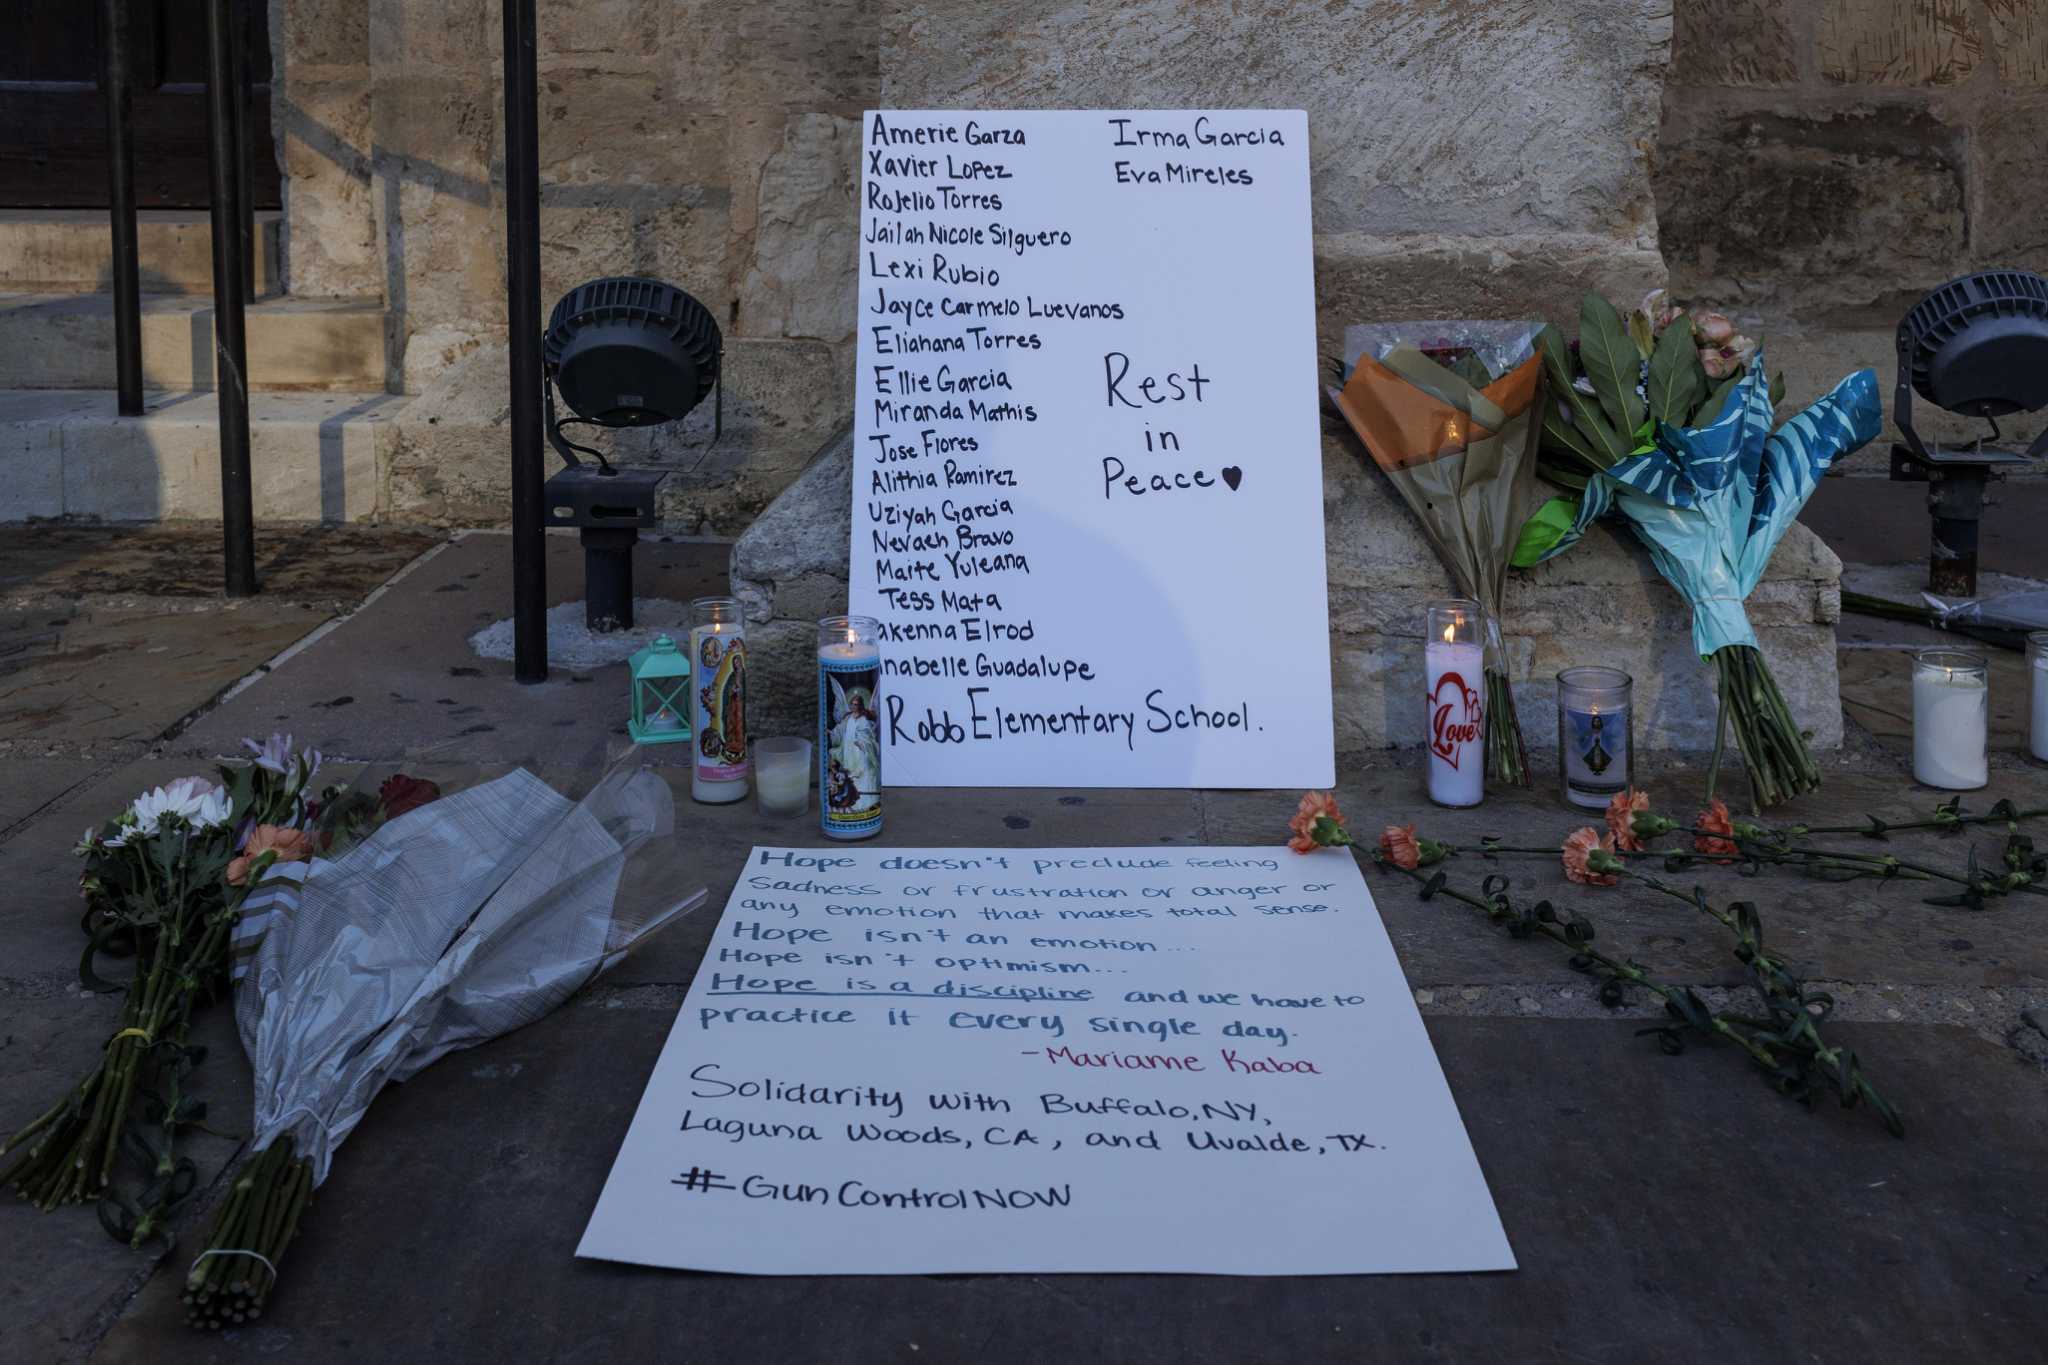 Amerie Garza
Xavier Lopez
Rojelio Torres
Jailah Nicole Silguero
Lexi Rubio
Jayce Carmelo Luevanos
Eliahana Torres
Ellie Garcia
Miranda Mathis
Jose Flores
Alithia Ramirez
Uziyah Garcia
Nevaeh Bravo
Maite Yuleana
Tess Mata
akenna Elrod
nnabelle Guadalupe
Robb Elementary School.
Irma Garcia
Eva Mireles
Rest
in
Peace♥
Love
Hope doesn't preclude feeling
sadness or frustration or anger or
any emotion that makes total sense.
Hope isn't an emotion...
Hope isn't optimism...
Hope is a discipline and we have to
practice it every single day.
-Mariame Kaba
Solidarity with Buffalo, NY,
Laguna Woods, CA, and Uvalde, TX.
#GunControlNOW